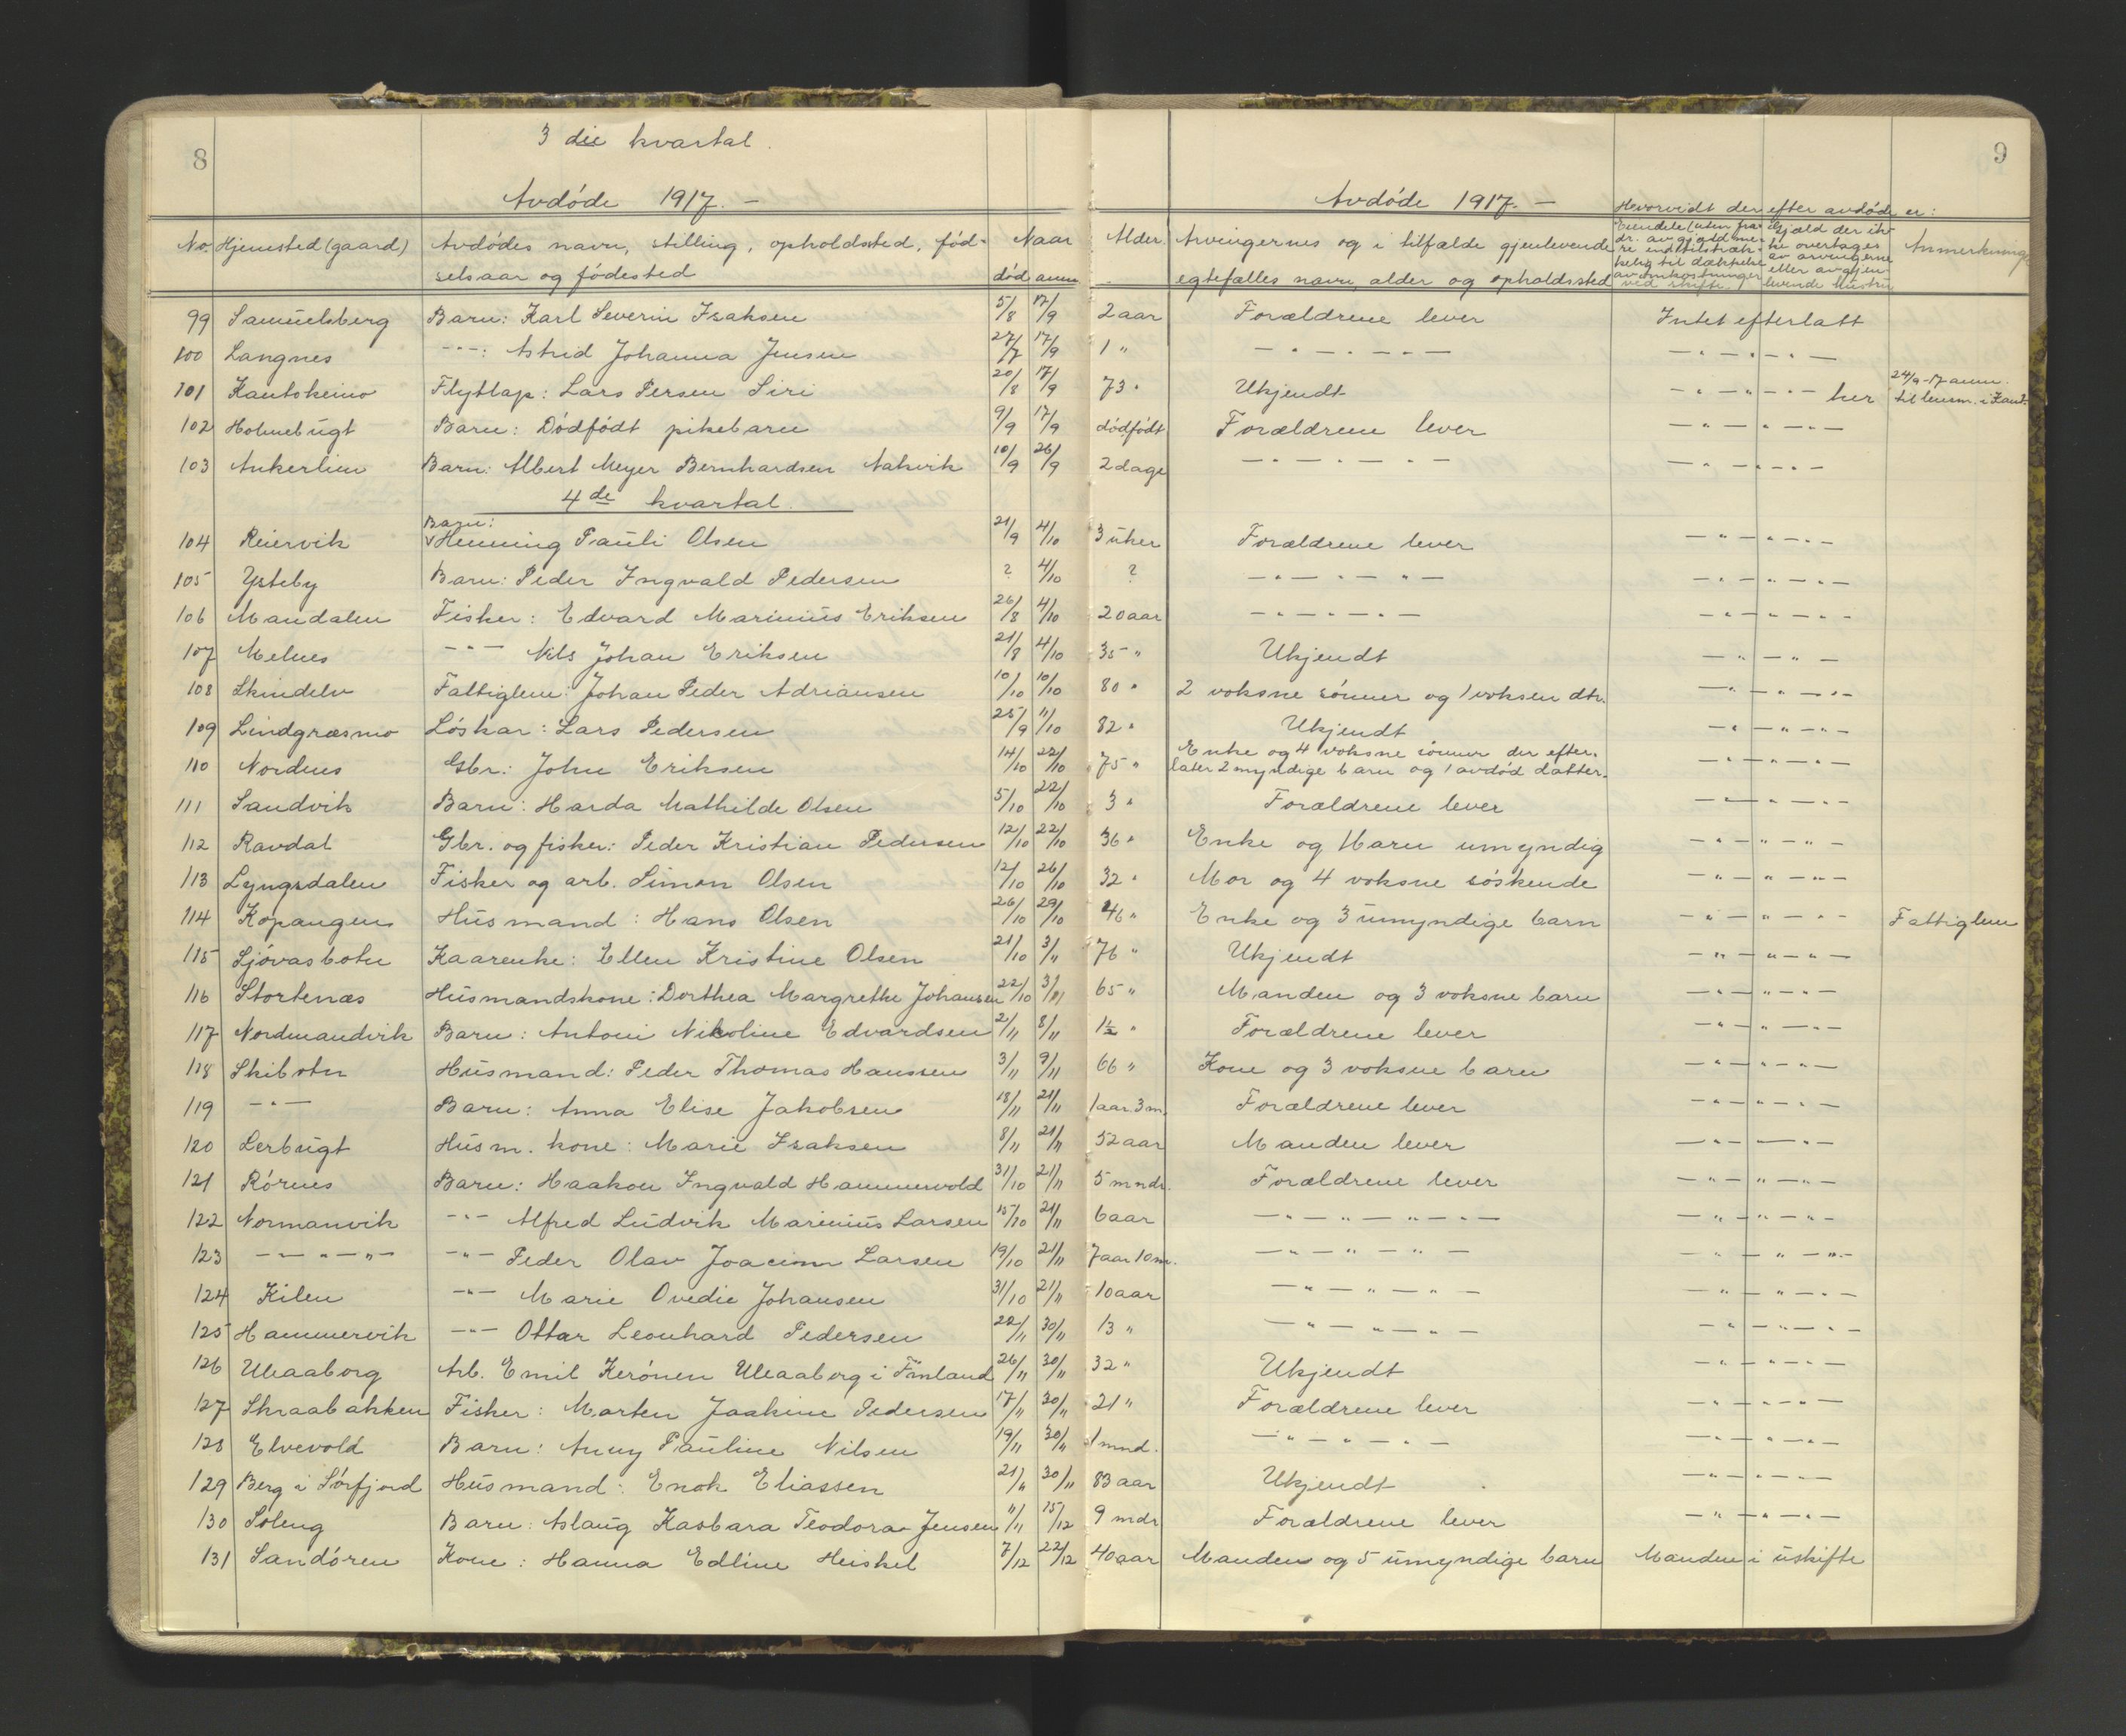 8
3 die kvartal.
Avdöde 1917. —
No. Hjemsted (gaard) Avdödes navn, stilling, opholdssted, föd- Naar
selsaar og födested död anm
99 Samuelsberg Barn: Karl Severin Isaksen 5/8 17/9
100 Langnes —"—: Astrid Johanna Jensen 27/7 17/9
101 Kautokeino Flytlap: Lars Persen Siri 20/8 17/9
102 Holmebugt Barn: Dödfödt pikebarn 9/9 17/9
103 Ankerlien Barn: Albert Meyer Bernhardsen Aakvik 10/9 26/9
4de kvartal.
Barn:
104 Reiervik Henning Pauli Olsen 21/9 4/10
105 Ysteby Barn: Peder Ingvald Pedersen ? 4/10
106 Mandalen Fisker: Edvard Marinius Eriksen 26/8 4/10
107 Melnes —"— Nils Johan Eriksen 21/8 4/10
108 Skindelv Fattiglem: Johan Peder Adriansen 10/10 10/10
109 Lindgræsmo Löskar: Lars Pedersen 25/9 11/10
110 Nordnes Gbr.: John Eriksen 14/10 22/10
111 Sandvik Barn: Harda Mathilde Olsen 5/10 22/10
112 Ravdal Gbr. og fisker: Peder Kristian Pedersen 12/10 22/10
113 Lyngsdalen Fisker og arb. Simon Olsen 12/10 26/10
114 Kopangen Husmand: Hans Olsen 26/10 29/10
115 Sjövasbotn Kaarenke: Ellen Kristine Olsen 21/10 3/11
116 Stortenæs Husmandskone: Dorthea Margrethe Johansen 22/10 3/11
117 Nordmandvik Barn: Antoni Nikoline Edvardsen 2/11 8/11
118 Skibotn Husmand: Peder Thomas Hanssen 3/11 9/11
119 —"— Barn: Anna Elise Jakobsen 18/11 21/11
120 Lerbugt Husm. kone: Marie Isaksen 8/11 21/11
121 Rörnes Barn: Haakon Ingvald Hammervold 31/10 21/11
122 Normanvik —"— Alfred Ludvik Marinius Larsen 15/10 21/11
123 —"—"— —"— Peder Olav Joacim Larsen 19/10 21/11
124 Kilen —"— Marie Ovedie Johansen 31/10 21/11
125 Hammervik —"— Ottar Leonhard Pedersen 22/11 30/11
126 Uleaaborg Arb. Emil Kerönen Uleaaborg i Finland 26/11 30/11
127 Skraabakken Fisker: Morten Joakim Pedersen 17/11 30/11
128 Elvevold Barn: Anny Pauline Nilsen 19/11 30/11
129 Berg i Sörfjord Husmand: Enok Eliassen 21/11 30/11
130 Soleng Barn: Aslaug Kasbara Teodora Jensen 11/11 15/12
131 Sandören Kone: Hanna Edline Heiskel 7/12 22/12
9
Avdöde 1917. —
Hvorvidt der efter avdöde er:
Alder. Arvingernes og i tilfælde gjenlevende
egtefælles navn, alder og opholdssted
Eiendele (uten fra-
dr. av gjæld me-
re end tilstræk-
kelig til dækkelse
av omkostninger
ved skifte)
Gjæld der ik-
ke overtages
av arvingerne
eller av gjen-
levende hustru
Anmerkning
2 aar Forældrene lever Intet efterlatt
1 " —"—"—"— —"—"—
73 " Ukjendt —"—"— her 24/9-17 anm. til lensm. i Kaut.
dödfödt Forældrene lever —"—"—
2 dage —"—"—"— —"—"—
3 uker Forældrene lever —"—"—
? —"—"—"— —"—"—
20 aar —"—"—"— —"—"—
35 " Ukjendt —"—"—
80 " 2 voksne sönner og 1 voksen dtr. —"—"—
82 " Ukjendt —"—"—
75 " Enke og 4 voksne sönner der efter-
later 2 myndige barn og 1 avdöd datter. —"—"—
3 " Forældrene lever —"—"—
36 " Enke og 1 barn umyndig —"—"—
32 " Mor og 4 voksne söskende —"—"—
46 " Enke og 3 umyndige barn —"—"— Fattiglem
76 " Ukjendt —"—"—
65 " Manden og 3 voksne barn —"—"—
1½ " Forældrene lever —"—"—
66 " Kone og 3 voksne barn —"—"—
1 aar 3 m. Forældrene lever —"—"—
52 aar Manden lever —"—"—
5 mndr. Forældrene lever —"—"—
6 aar —"—"—"— —"—"—
7 aar 10 m. —"—"—"— —"—"—
10 aar —"—"—"— —"—"—
13 " —"—"—"— —"—"—
32 " Ukjendt —"—"—
21 " Forældrene lever —"—"—
1 mnd. —"—"—"— —"—"—
83 aar Ukjendt —"—"—
9 mdr Forældrene lever —"—"—
40 aar Manden og 5 umyndige barn Manden i uskifte